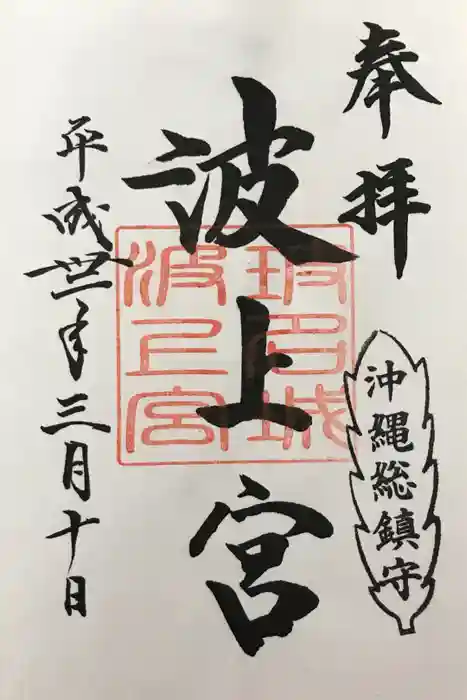 奉拝
沖縄総鎮守
波上宮
坡名城
波上宮
平成卅一年三月十日